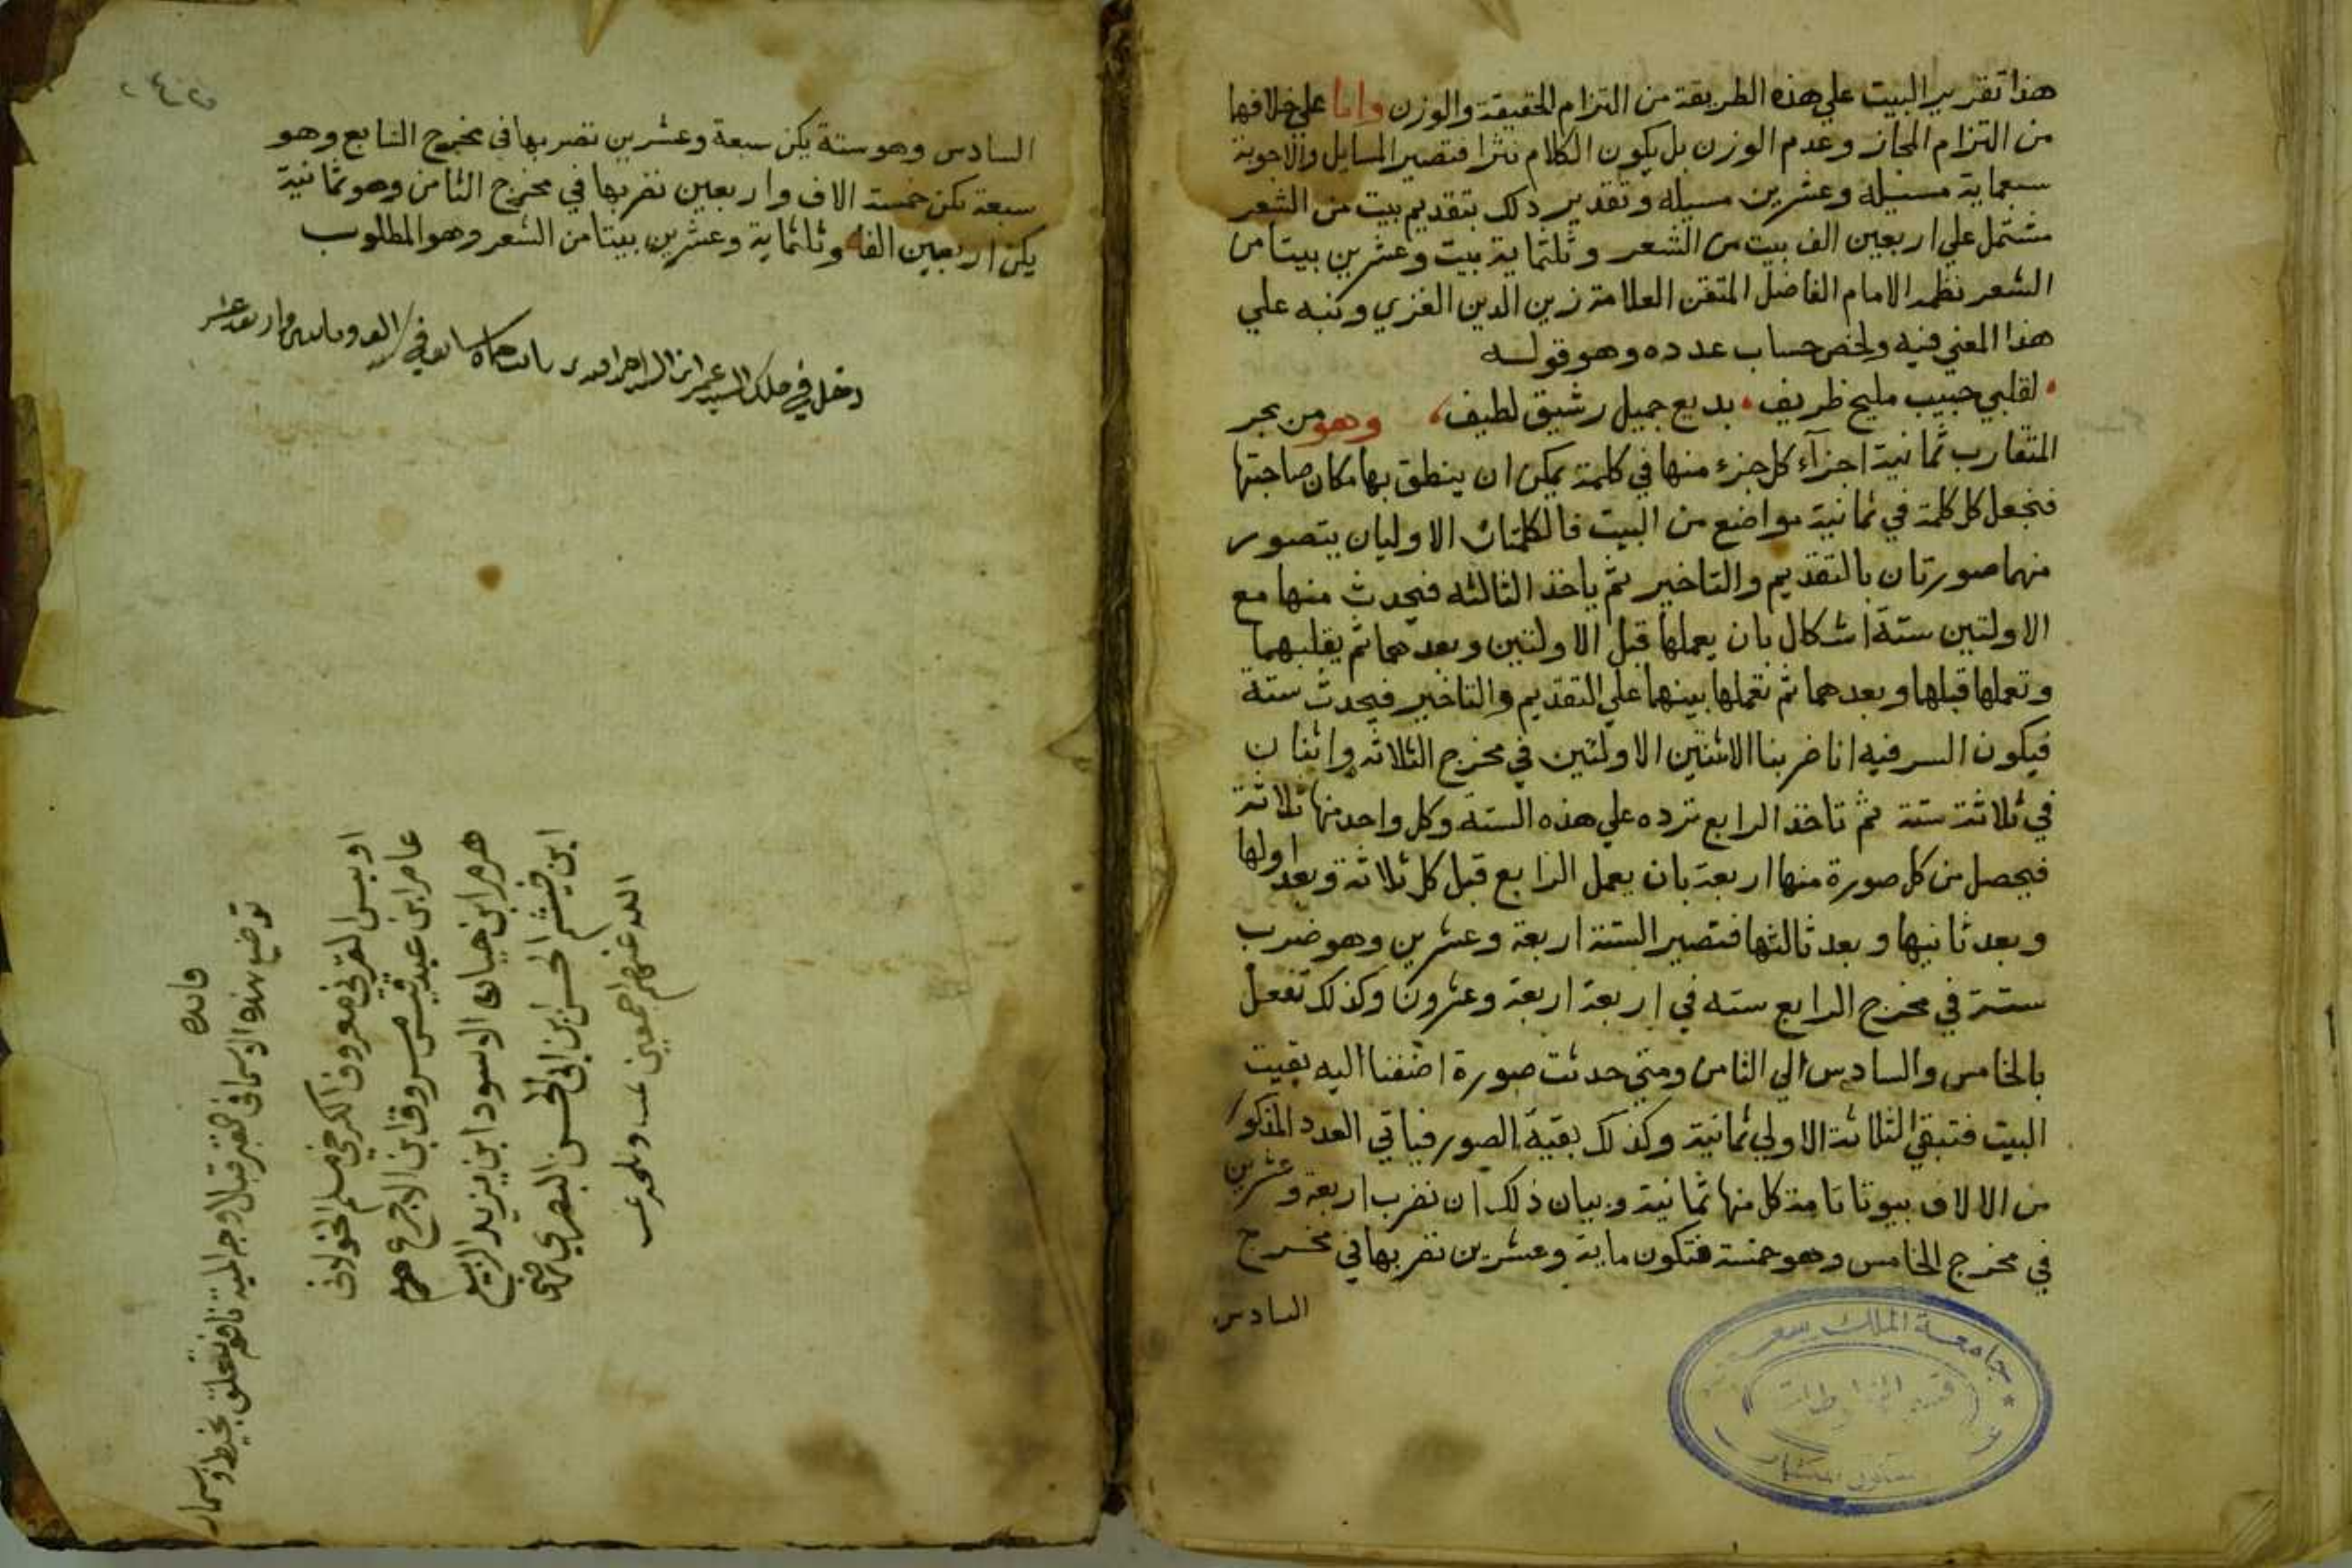 هذا تقرير البيت علي هذه الطريقة من التزام الحقيقة والوزن واما علي خلافها
من التزام المجاز وعدم الوزن بل يكون الكلام نثرا فتصير المسايل والاجوبة
سبعماية مسيله وعشرين مسيله وتقدير ذلك بتقديم بيت من الشعر
مشتمل علي اربعين الف بيت من الشعر وثلثماية بيت وعشرين بيتا من
الشعر نظمه الامام الفاضل المتقن العلامة زين الدين الغزي ونبه علي
هذا المعني فيه ولخص حساب عدده وهو قوله
لقلبي حبيب مليح ظريف بديع جميل رشيق لطيف وهو من بحر
المتقارب ثمانية اجزآء كل جزء منها في كلمة يمكن ان ينطق بها مكان صاحبتها
فنجعل كل كلمة في ثمانية مواضع من البيت فالكلمتان الاوليان يتصور
منهما صورتان بالتقديم والتاخير ثم ياخذ الثالثه فيحدث منها مع
الاولتين ستة اشكال بان يعملها قبل الاولتين وبعدهما ثم يقلبهما
وتعملها قبلها وبعدهما ثم تعملها بينهما علي التقديم والتاخير فيحدث ستة
فيكون السر فيه انا ضربنا الاثنتين الاولتين في مخرج الثلاثه واثنان
في ثلاثة ستة ثم تاخذ الرابع ترده علي هذه الستة وكل واحد منها ثلاثة
فيحصل من كل صورة منها اربعة بان يعمل الرابع قبل كل ثلاثة وبعد اولها
وبعد ثانيها وبعد ثالثها فتصير الستة اربعة وعشرين وهو ضرب
ستة في مخرج الرابع سته في اربعة اربعة وعشرون وكذلك تفعل
بالخامس والسادس الي الثامن ومتي حدثت صورة اضفنا اليه بقيت
البيت فتبقي الثلاثة الاولي ثمانية وكذلك بقية الصور فياتي العدد المذكور
من الالاف بيوتا تامة كل منها ثمانية وبيان ذلك ان نضرب اربعة وعشرين
في مخرج الخامس وهو خمسة فتكون ماية وعشرين نضربها في مخرج
السادس
جامعة الملك سعود
قسم المخطوطات
السادس وهو ستة يكن سبعة وعشرين نضربها في مخرج السابع وهو
سبعة تكن خمسة الاف واربعين نضربها في مخرج الثامن وهو ثمانية
يكن اربعين الفا وثلثماية وعشرين بيتا من الشعر وهو المطلوب
دخل في ملك السيد عمر ابن السيد
فايده
توضع هذه الاسما في القبر قبالا وجه الميت
اويس القرني معروف الكرخي مسلم الخولاني
عامر ابن عبد قيس مسروق ابن الاجدع
هرم ابن حيان الاسود ابن يزيد الربيع
ابن خيثم الحسن ابن ابي الحسن البصري رضي
الله عنهم اجمعين